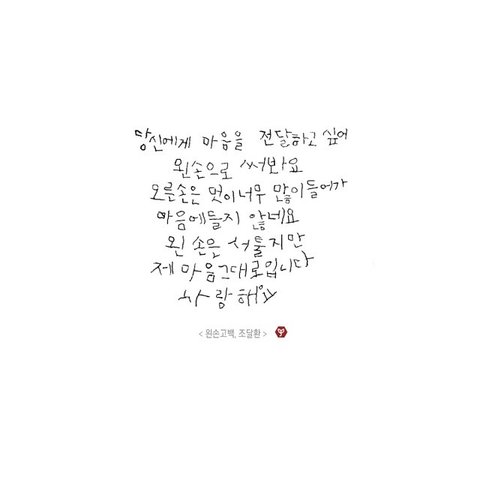 당신에게 마음을 전달하고 싶어
왼손으로 써봐요
오른손은 멋이너무 많이들어가
마음에들지 않네요
왼손은 서툴지만
제 마음그대로입니다
사랑해요
< 왼손고백, 조달환 >